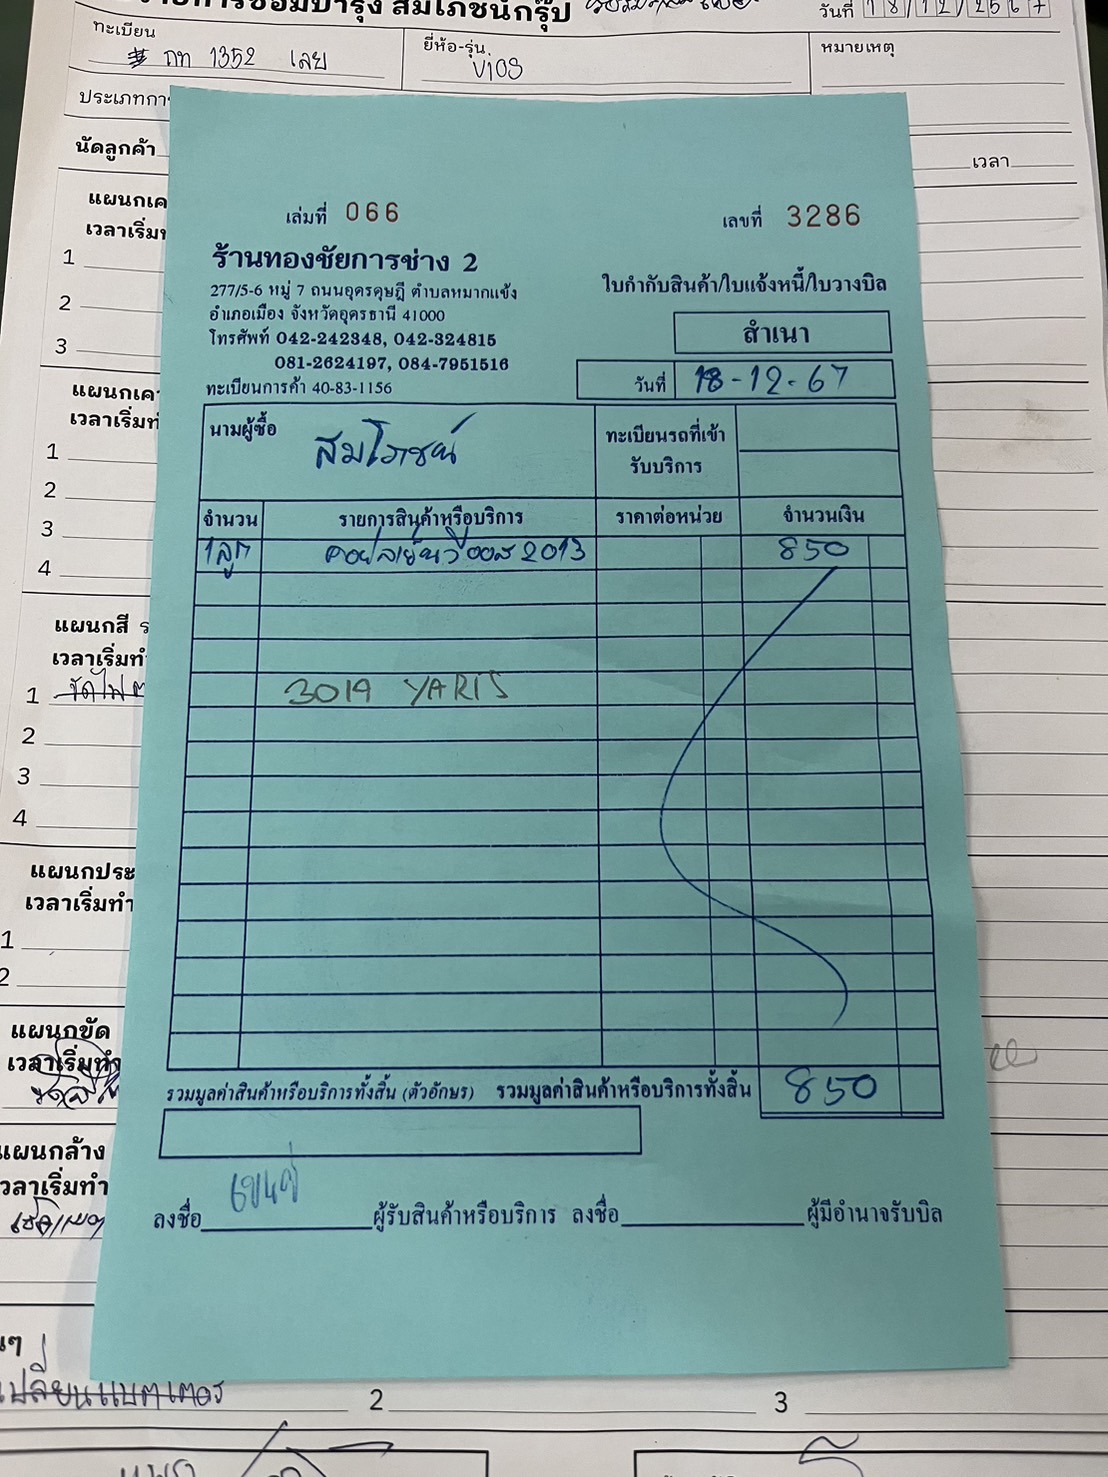 รายการซ่อมบำรุง สมโภชน์กรุ๊ป
วันที่ 18/12/2567
ทะเบียน
กท 1352 เลย
ยี่ห้อ-รุ่น
VIOS
หมายเหตุ
นัดลูกค้า
เวลา
แผนกเค
1
2
3
แผนกเค
1
2
3
4
แผนกสี
1
2
3
4
แผนกประ
เวลาเริ่มทำ
1
2
แผนกขัด
เวลาเริ่มทำ
แผนกล้าง
วลาเริ่มทำ
เปลี่ยนแบตเตอร
2
3
เล่มที่ 066
เลขที่ 3286
ร้านทองชัยการช่าง 2
277/5-6 หมู่ 7 ถนนอุดรดุษฎี ตำบลหมากแข้ง
อำเภอเมือง จังหวัดอุดรธานี 41000
โทรศัพท์ 042-242348, 042-324815
081-2624197, 084-7951516
ทะเบียนการค้า 40-83-1156
ใบกำกับสินค้า/ใบแจ้งหนี้/ใบวางบิล
สำเนา
วันที่ 18-12-67
นามผู้ซื้อ สมโภชน์
ทะเบียนรถที่เข้า
รับบริการ
จำนวน รายการสินค้าหรือบริการ ราคาต่อหน่วย จำนวนเงิน
1ลูก คอยล์เย็นวีออส 2013 850
3019 YARIS
รวมมูลค่าสินค้าหรือบริการทั้งสิ้น (ตัวอักษร) รวมมูลค่าสินค้าหรือบริการทั้งสิ้น 850
ลงชื่อ ผู้รับสินค้าหรือบริการ ลงชื่อ ผู้มีอำนาจรับบิล